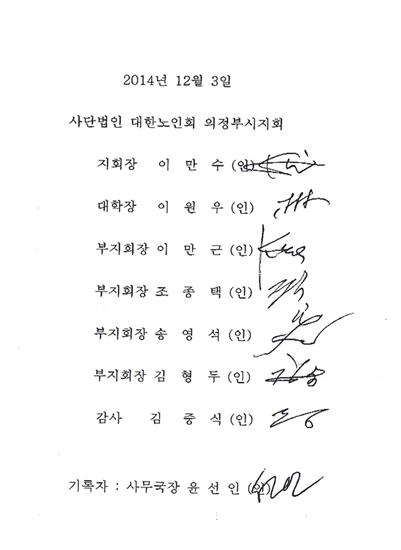 2014년 12월 3일
사단법인 대한노인회 의정부시지회
지회장 이 만 수 (인)
대학장 이 원 우 (인)
부지회장 이 만 근 (인)
부지회장 조 종 택 (인)
부지회장 송 영 석 (인)
부지회장 김 형 두 (인)
감사 김 중 식 (인)
기록자 : 사무국장 윤 선 인 (인)